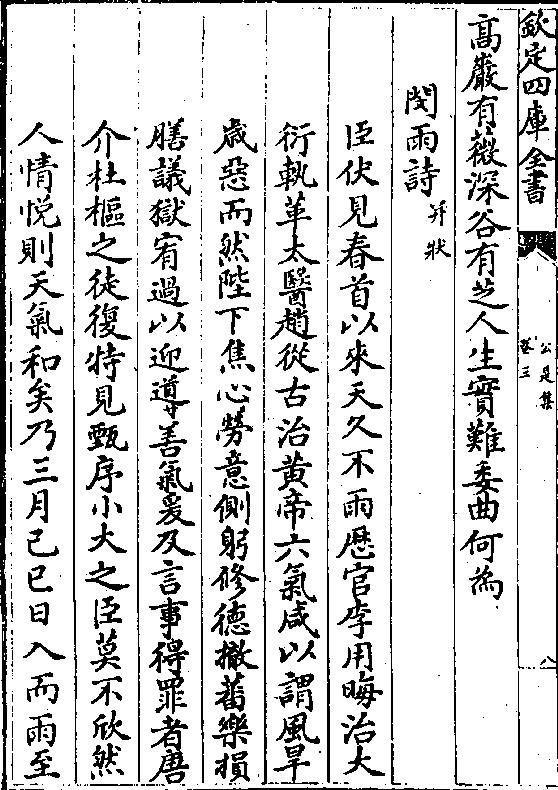 欽定四庫全書
公是集
卷三
八
高巖有薇深谷有芝人生實難委曲何為
閔雨詩并狀
臣伏見春首以來天久不雨厯官李用晦治大
衍執革太醫趙從古治黄帝六氣咸以謂風旱
歳惡而然陛下焦心勞意側躬修德撤蕃樂損
膳議獄宥過以迎導善氣爰及言事得罪者唐
介杜樞之徒復特見甄序小大之臣莫不欣然
人情悦則天氣和矣乃三月己巳日入而雨至